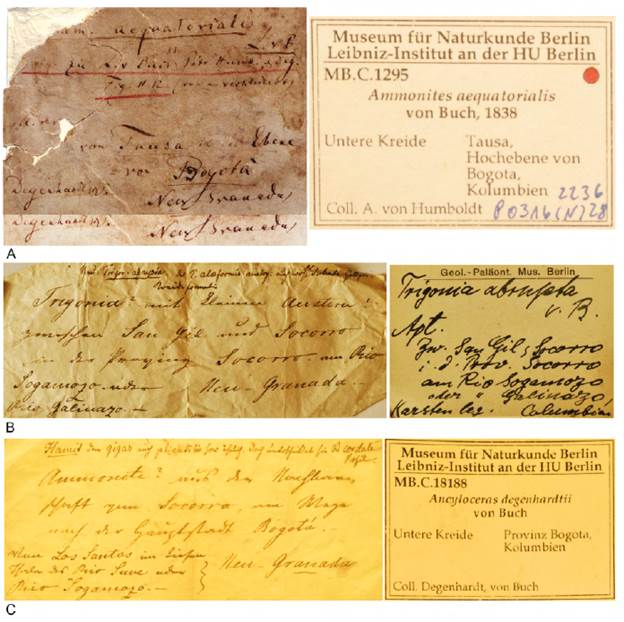 aequatoriale
L. v. B.
von Tausa in der Ebene
von Bogotá
Degenhardt
Neu Granada
Degenhardt
Neu Granada
Museum für Naturkunde Berlin
Leibniz-Institut an der HU Berlin
MB.C.1295
Ammonites aequatorialis
von Buch, 1838
Untere Kreide Tausa,
Hochebene von
Bogota,
Kolumbien 2236
Coll. A. von Humboldt
A
Trigonia? mit kleinen Austern
zwischen San Gil und Socorro
in der Provinz Socorro am Rio
Sogamozo oder Neu-Granada.
Rio Galinazo.
Geol.-Paläont. Mus. Berlin
Trigonia abrupta
v. B.
Apt.
Zw. San Gil & Socorro
i. d. Prov. Socorro
am Rio Sogamozo
oder " Galinazo,
Karsten leg. Columbien
B
Hamit
Ammonite? aus der
Socorro, am Wege
nach der Hauptstadt Bogotá.
Los Santos im tiefen
des Rio Suve oder Neu-Granada
Rio Sogamozo
Museum für Naturkunde Berlin
Leibniz-Institut an der HU Berlin
MB.C.18188
Ancyloceras degenhardtii
von Buch
Untere Kreide Provinz Bogota,
Kolumbien
Coll. Degenhardt, von Buch
C